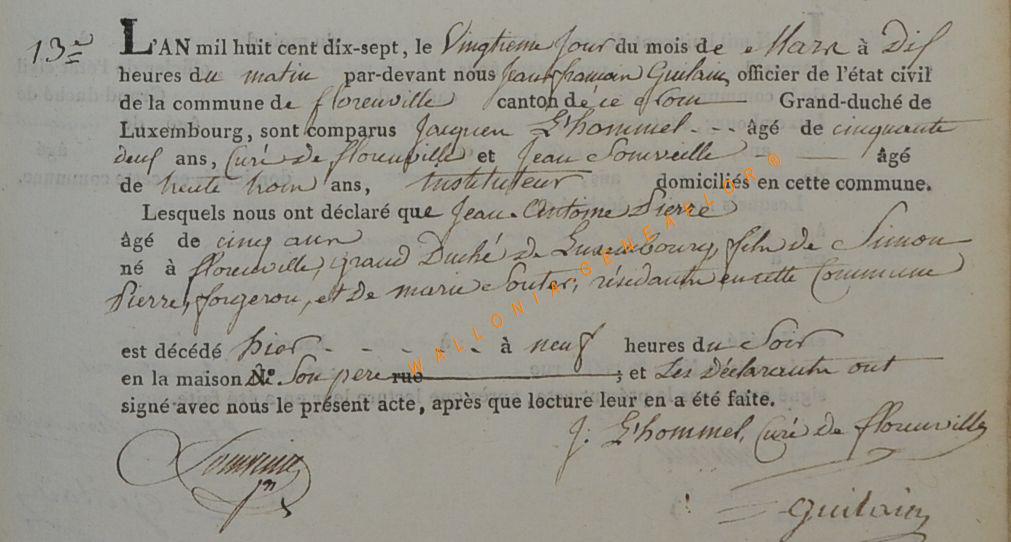 13e
L'AN mil huit cent dix-sept, le Vingtieme Jour du mois de Mars à Dix
heures du matin par-devant nous Jean françois Guilain, officier de l'état civil
de la commune de florenville canton de ce nom Grand-duché de
Luxembourg, sont comparus Jacques L'hommel - - âgé de cinquante
deux ans, Curé de florenville et Jean Somveille - âgé
de trente trois ans, instituteur domiciliés en cette commune.
Lesquels nous ont déclaré que Jean-Antoine Pierre
âgé de cinq ans
né à florenville, grand Duché de Luxembourg, fils de Simon
Pierre, forgeron, et de marie Souter, résidants en cette Commune
est décédé hier - - - - - à neuf heures du Soir
en la maison de Son pere rue ; et Les déclarants ont
signé avec nous le présent acte, après que lecture leur en a été faite.
J. L'hommel, Curé de florenville
Guilain
WALLONIA-GENEALLOR®